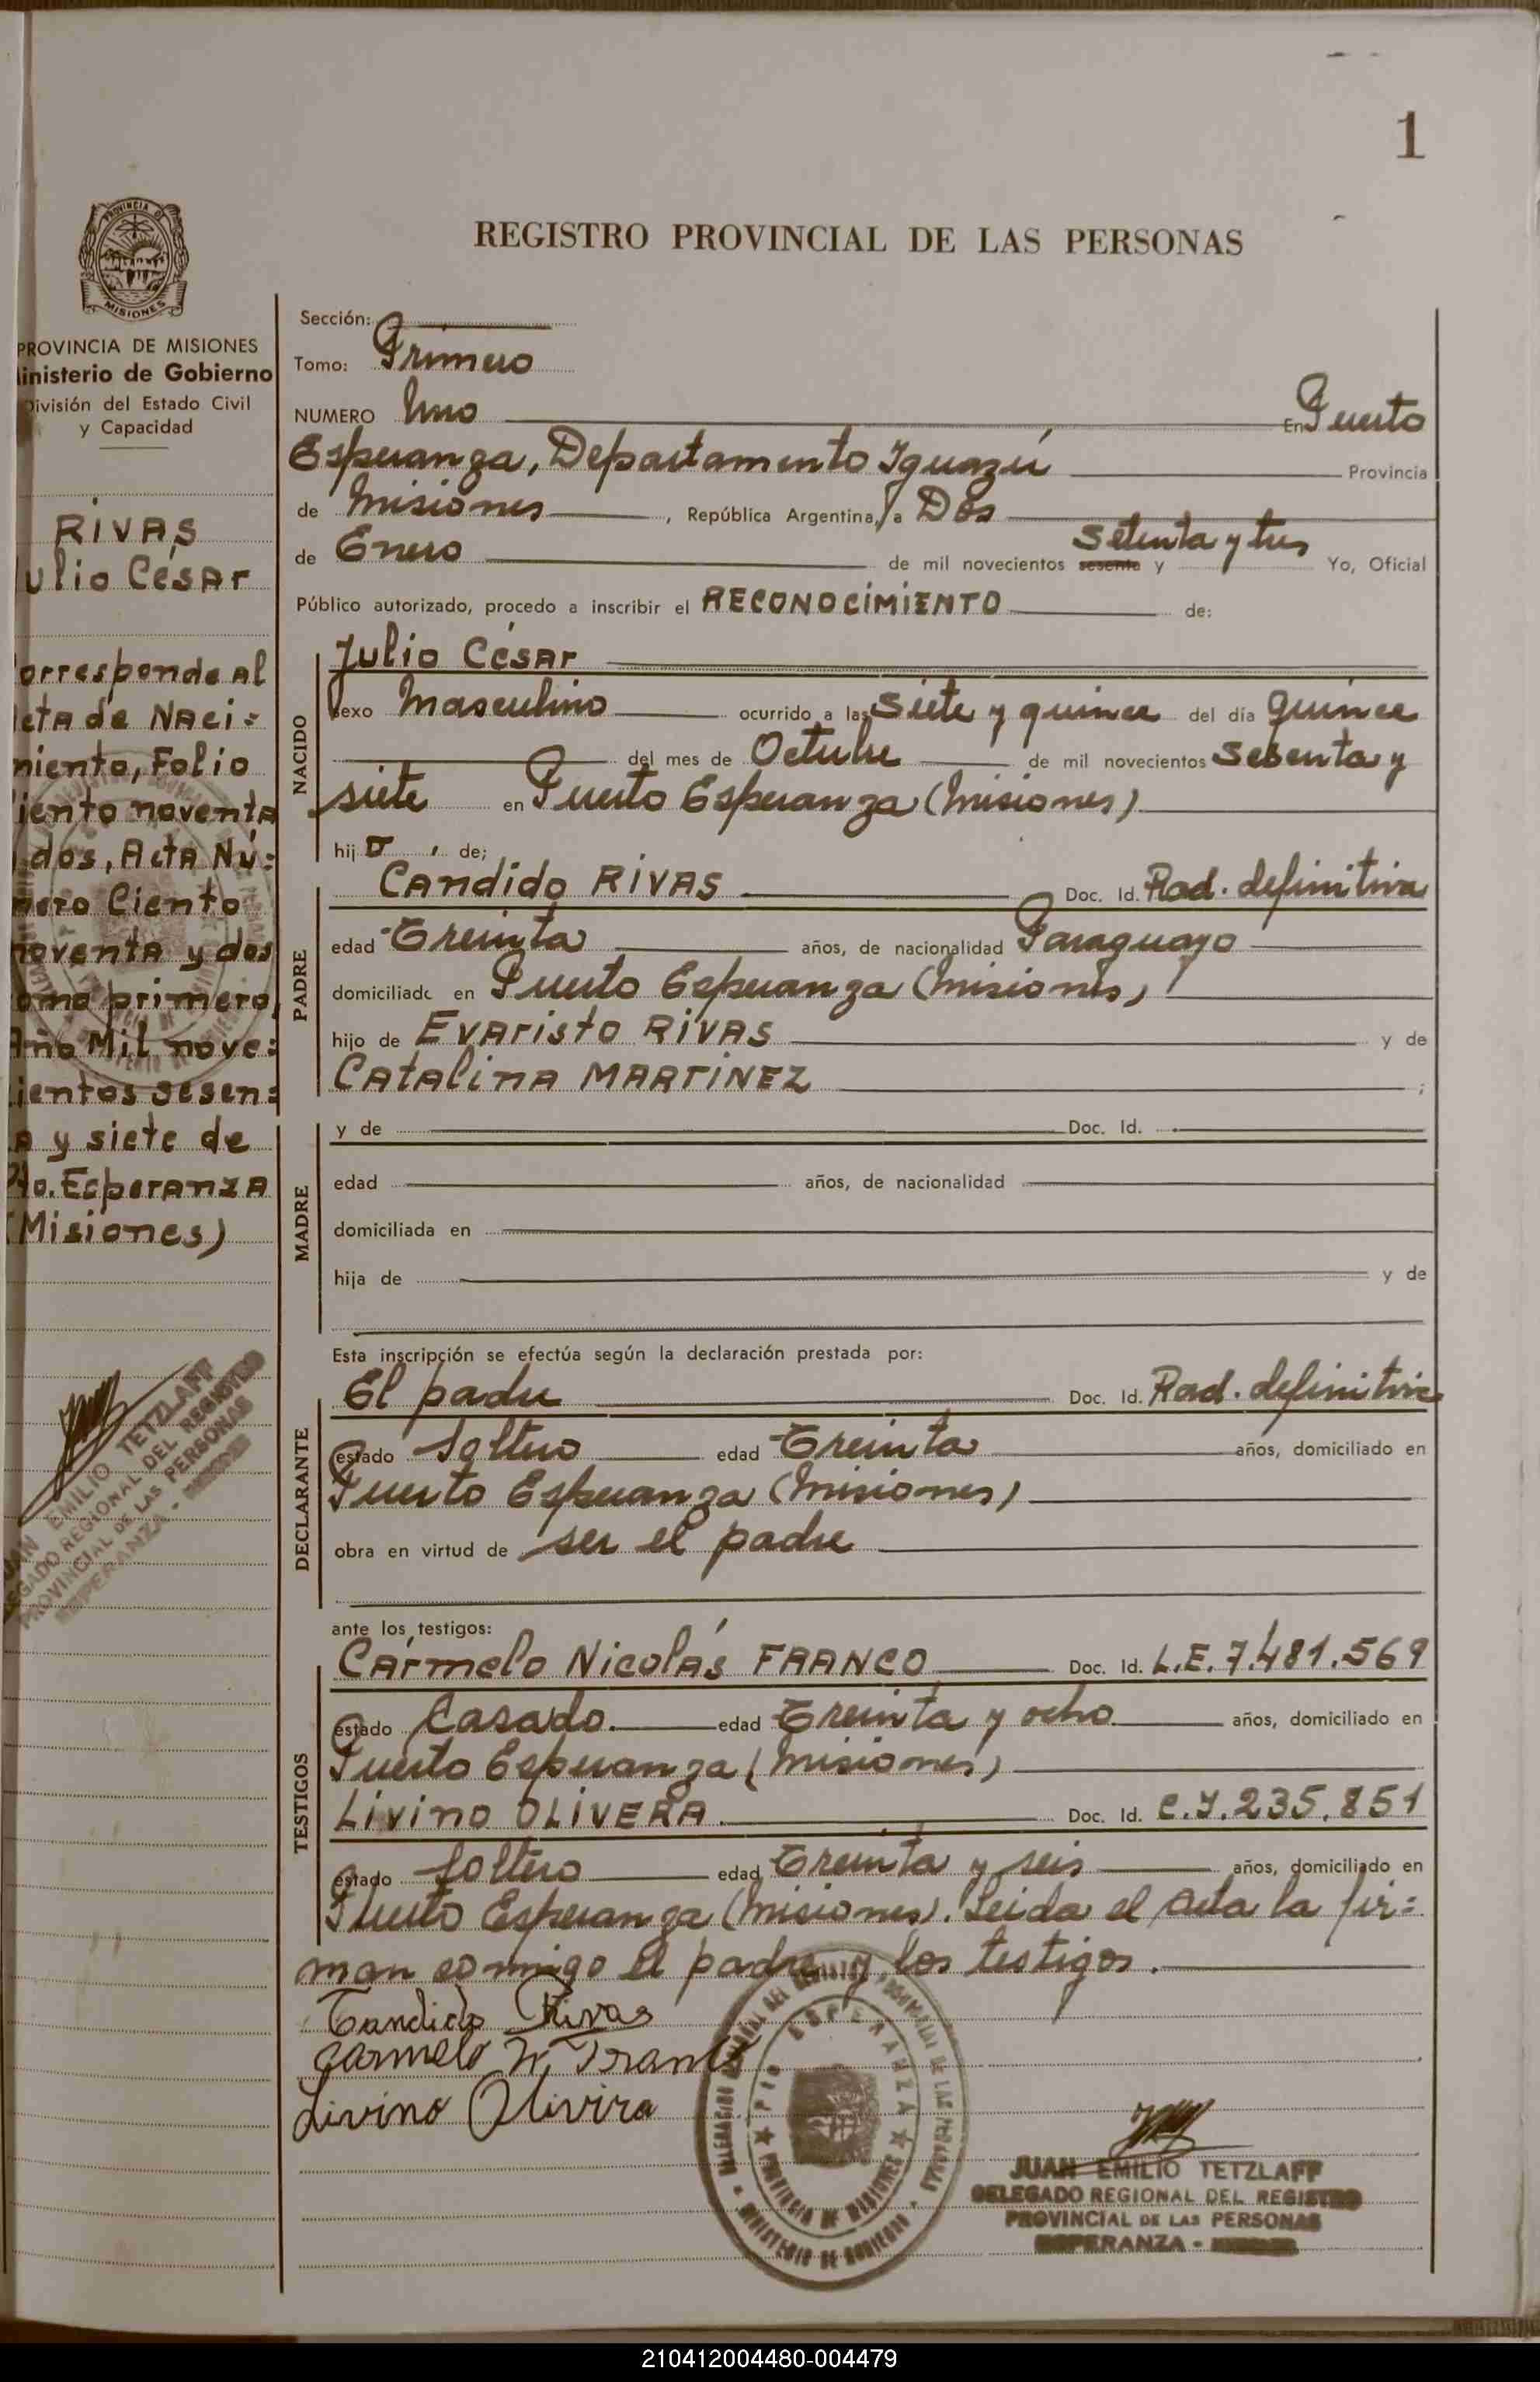 1
REGISTRO PROVINCIAL DE LAS PERSONAS
PROVINCIA DE
MISIONES
PROVINCIA DE MISIONES
inisterio de Gobierno
División del Estado Civil
y Capacidad
RIVAS
ulio César
orresponde al
cta de Naci=
miento, Folio
iento noventa
dos, Acta Nú=
mero Ciento
noventa y dos
omo primero,
Año Mil nove=
ientos sesen=
a y siete de
to. Esperanza
(Misiones)
JUAN EMILIO TETZLAFF
DELEGADO REGIONAL DEL REGISTRO
PROVINCIAL DE LAS PERSONAS
ESPERANZA -
Sección:
Tomo: Primero
NUMERO Uno En Puerto
Esperanza, Departamento Iguazú Provincia
de Misiones, República Argentina, a Dos
de Enero de mil novecientos sesenta y setenta y tres Yo, Oficial
Público autorizado, procedo a inscribir el RECONOCIMIENTO de:
NACIDO
Julio César
sexo Masculino ocurrido a las Siete y quince del día quince
del mes de Octubre de mil novecientos Sesenta y
siete en Puerto Esperanza (Misiones)
hijo, de;
PADRE
Candido RIVAS Doc. Id. Rad. definitiva
edad Treinta años, de nacionalidad Paraguayo
domiciliado en Puerto Esperanza (Misiones)
hijo de Evaristo RIVAS y de
Catalina MARTINEZ ;
MADRE
y de Doc. Id.
edad años, de nacionalidad
domiciliada en
hija de y de
Esta inscripción se efectúa según la declaración prestada por:
DECLARANTE
El padre Doc. Id. Rad. definitiva
estado Soltero edad Treinta años, domiciliado en
Puerto Esperanza (Misiones)
obra en virtud de ser el padre
ante los testigos:
TESTIGOS
Carmelo Nicolás FRANCO Doc. Id. L.E. 7.481.569
estado Casado. edad Treinta y ocho años, domiciliado en
Puerto Esperanza (Misiones)
Livino OLIVERA Doc. Id. C.I. 235.851
estado Soltero edad Treinta y seis años, domiciliado en
Puerto Esperanza (Misiones). Leida el Acta la fir=
man conmigo el padre y los testigos.
Candido Rivas
Carmelo N. Franco
Livino Olivira
PTO ESPERANZA
PROVINCIA DE MISIONES
MINISTERIO DE GOBIERNO
JUAN EMILIO TETZLAFF
DELEGADO REGIONAL DEL REGISTRO
PROVINCIAL DE LAS PERSONAS
ESPERANZA -
210412004480-004479